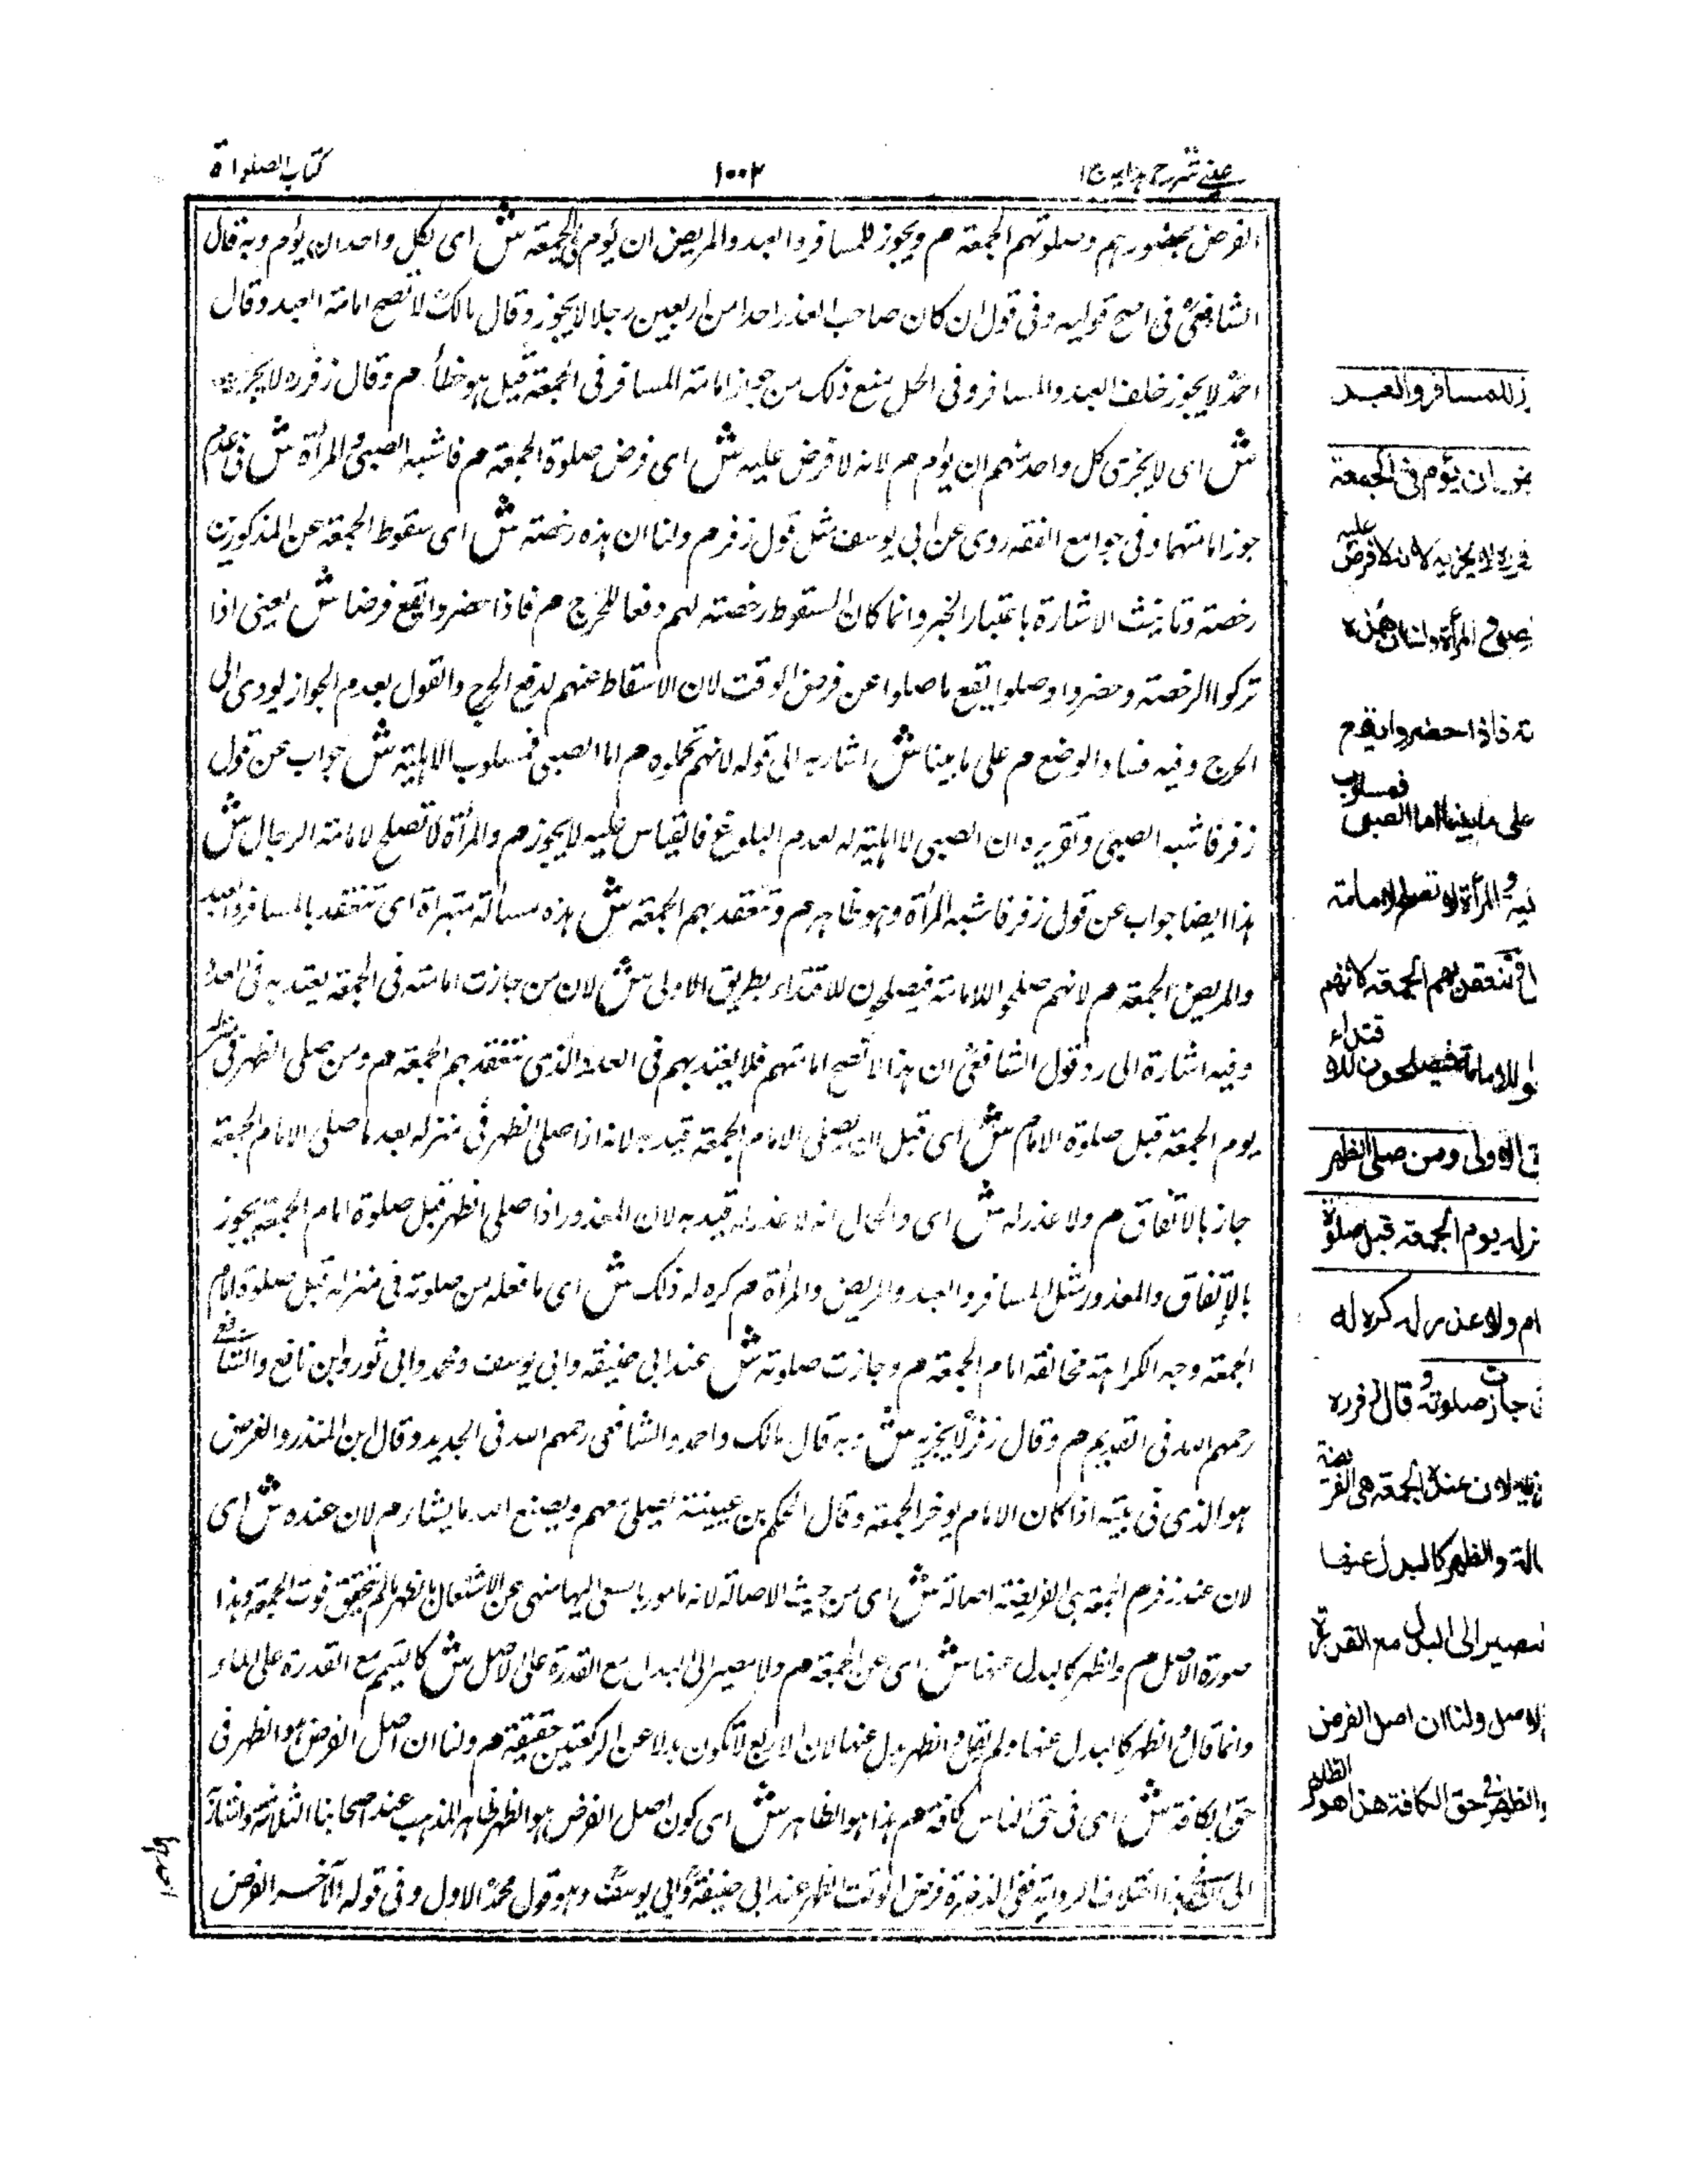 عینی شرح ہدایہ ج ١
١٠٠٢
کتاب الصلواة
الفرض بحضورہم وصلوتہم الجمعة م ویجوز للمسافر والعبد والمریض ان یؤم فی الجمعة ش ای لکل واحد ان یؤم وبہ قال
الشافعیؒ فی اصح قولیہ وفی قول ان کان صاحب العذر احدا من اربعین رجلا لا یجوز وقال مالکؒ لا تصح امامة العبد وقال
احمدؒ لا یجوز خلف العبد والمسافر وفی الحل منع ذلک من جواز امامة المسافر فی الجمعة قیل ہو خطأ م وقال زفررہ لا یجزیہ
ش ای لا یجزی کل واحد منہم ان یؤم م لانہ لا فرض علیہ ش ای فرض صلوة الجمعة م فاشبہ الصبی والمرأة ش فی عدم
جواز امامتہما وفی جوامع الفقہ روی عن ابی یوسف مثل قول زفر م ولنا ان ہذہ رخصتہ ش ای سقوط الجمعة عن المذکورین
رخصتہ وتانیث الاشارة باعتبار الخبر وانما کان السقوط رخصتہ لہم دفعا للحرج م فاذا حضروا یقع فرضا ش یعنی اذا
ترکوا الرخصتہ وحضروا وصلوا یقع ما صلوا عن فرض الوقت لان الاسقاط عنہم لدفع الحرج والقول بعدم الجواز یودی الی
الحرج وفیہ فساد الوضع م علی ما بینا ش اشار بہ الی قولہ لانہم تحملوہ م اما الصبی فمسلوب الاہلیة ش جواب عن قول
زفر فاشبہ الصبی وتقریرہ ان الصبی لا اہلیة لہ لعدم البلوغ فالقیاس علیہ لا یجوز م والمرأة لا تصلح لامامتہ الرجال ش
ہذا ایضا جواب عن قول زفر فاشبہ المرأة وہو ظاہر م وتنعقد بہم الجمعة ش ہذہ مسألة مبتدأة ای تنعقد بالمسافر والعبد
والمریض الجمعة م لانہم صلحوا للامامة فیصلحون للاقتداء بطریق الاولی ش لان من جازت امامتہ فی الجمعة یعتد بہ فی العدد
وفیہ اشارة الی رد قول الشافعیؒ ان ہذا لا تصح امامتہم فلا یعتد بہم فی العدد الذی تنعقد بہم الجمعة م ومن صلی الظہر فی منزلہ
یوم الجمعة قبل صلوة الامام ش ای قبل ان یصلی الامام الجمعة قید بہ لانہ اذا صلی الظہر فی منزلہ بعد ما صلی الامام الجمعة
جاز بالاتفاق م ولا عذر لہ ش ای والحال انہ لا عذر لہ قید بہ لان المعذور اذا صلی الظہر قبل صلوة امام الجمعة یجوز
بالاتفاق والمعذور مثل المسافر والعبد والمریض والمرأة م کرہ لہ ذلک ش ای ما فعلہ من صلوتہ فی منزلہ قبل صلوة امام
الجمعة وجہ الکراہة مخالفة امام الجمعة م وجازت صلوتہ ش عند ابی حنیفة وابی یوسف ومحمد وابی ثور وابن نافع والشافعی
رحمہم اللہ فی القدیم م وقال زفرؒ لا یجزیہ ش وبہ قال مالک واحمد والشافعی رحمہم اللہ فی الجدید وقال ابن المنذر والفرض
ہو الذی فی بیتہ اذا کان الامام یوخر الجمعة وقال الحکم بن عیینة یصلی معہم ویصنع اللہ ما یشاء م لان عندہ ش ای
لان عند زفر م الجمعة ہی الفریضة اصالة ش ای من حیث الاصالة لانہ مامور بالسعی الیہا منہی عن الاشتغال بالظہر ما لم یتحقق فوت الجمعة وہذا
صورة الاصل م والظہر کالبدل عنہا ش ای عن الجمعة م ولا مصیر الی البدل مع القدرة علی الاصل ش کالتیمم مع القدرة علی الماء
وانما قال والظہر کالبدل عنہا ولم یقل والظہر بدل عنہا لان الاربع لا تکون بدلا عن الرکعتین حقیقة م ولنا ان اصل الفرض ہو الظہر فی
حق الکافة ش ای فی حق الناس کافة م ہذا ہو الظاہر ش ای کون اصل الفرض ہو الظہر ظاہر المذہب عند اصحابنا الثلاثة واشار
الی ہذا اختلاف الروایة ففی الذخیرة فرض الوقت الظہر عند ابی حنیفةؒ وابی یوسفؒ وہو قول محمدؒ الاول وفی قولہ الآخر الفرض
احدہما
ز للمسافر والعبد
یض ان یؤم فی الجمعة
فررہ لا یجزیہ لانہ لا فرض علیہ
لصبی والمرأة ولنا ان ہذہ
تہ فاذا حضروا یقع
علی ما بینا اما الصبی فمسلوب
لیة والمرأة لا تصلح لامامة
وتنعقد بہم الجمعة لانہم
وا للامامة فیصلحون للاقتداء
ق الاولی ومن صلی الظہر
نزلہ یوم الجمعة قبل صلوة
ام ولا عذر لہ کرہ لہ
وجازت صلوتہ وقال زفررہ
زیہ لان عندہ الجمعة ھی الفریضة
الة والظہر کالبدل عنہا
مصیر الی البدل مع القدرة
الاصل ولنا ان اصل الفرض
والظہر فی حق الکافة ھذا ھو الظاہر